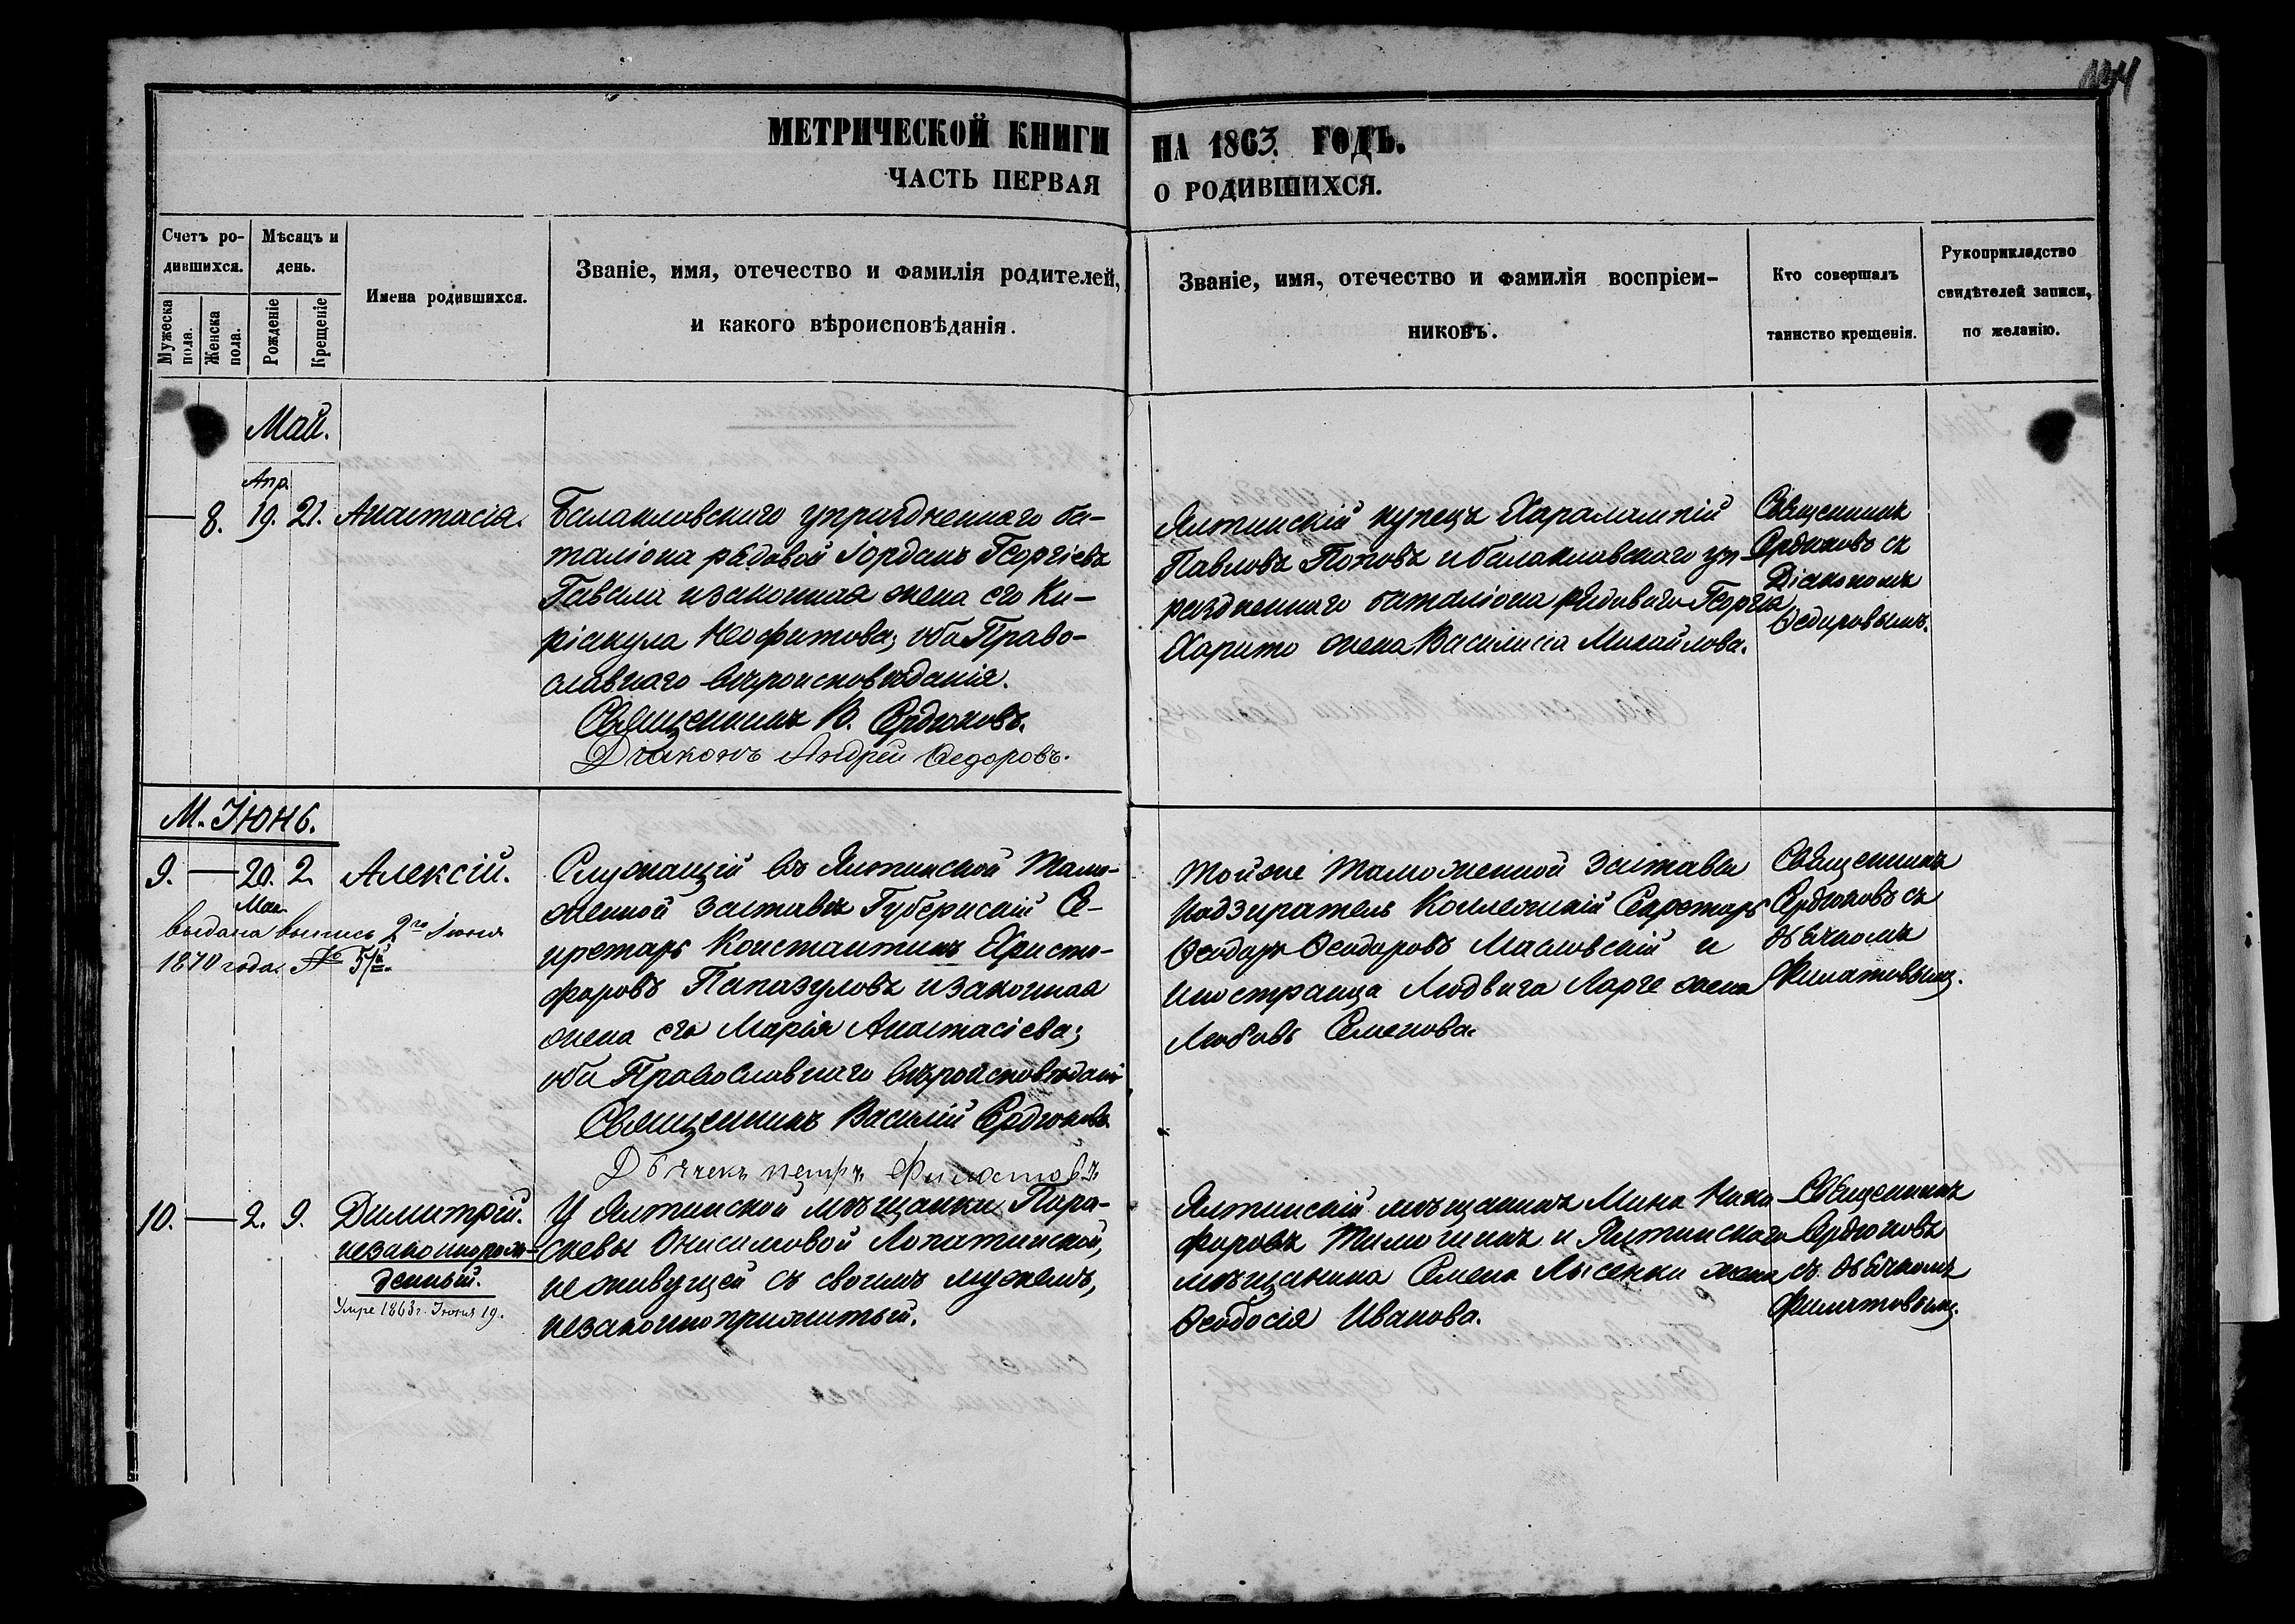 МЕТРИЧЕСКОЙ КНИГИ НА 1863. ГОДЪ.
ЧАСТЬ ПЕРВАЯ О РОДИВШИХСЯ.
Счетъ ро-
дившихся.
Мужеска пола.
Женска пола.
Мѣсяцъ и
день.
Рожденіе
Крещеніе
Имена родившихся.
Званіе, имя, отечество и фамилія родителей,
и какого вѣроисповѣданія.
Званіе, имя, отечество и фамилія воспріем-
никовъ.
Кто совершалъ
таинство крещенія.
Рукоприкладство
свидѣтелей записи,
по желанію.
Май.
Апр.
8. 19. 21. Анастасія.
Балаклавскаго упраздненнаго ба-
таліона рядовой Іорданъ Георгіевъ
Гавала и законная жена его Ки-
ріакула Неофитова; оба Право-
славнаго вѣроисповѣданія.
Священникъ В. Сердюковъ.
Діаконъ Андрей Ѳедоровъ.
Ялтинскій купецъ Харалампій
Павловъ Поповъ и балаклавскаго уп-
раздненнаго баталіона рядоваго Георгія
Харито жена Василиса Михайлова.
Священникъ
Сердюковъ съ
Діакономъ
Ѳедоровымъ.
М. Іюнь.
9. — 20. 2. Алексій.
Мая
выдана выпись 2го Іюня
1870 года. №
Служащій въ Ялтинской Тамо-
женной заставѣ Губернскій Се-
кретарь Константинъ Христо-
форовъ Папазуловъ и законная
жена его Марія Анастасіева;
оба Православнаго вѣроисповѣдані
Священникъ Василій Сердюковъ
Дьячекъ петръ Филатовъ
Тойже Таможенной заставы
Надзиратель Коллежскій Секретарь
Ѳеодоръ Ѳеодоровъ Масловскій и
Иностранца Людвига Ларге жена
Любовь Семенова.
Священникъ
Сердюковъ съ
дьячкомъ
Филатовымъ.
10. — 2. 9. Димитрій.
незаконнорож-
денный.
Умре 1863 г. Іюня 19.
У Ялтинской мѣщанки Пара-
скевы Онисимовой Лопатинской,
неживущей съ своимъ мужемъ,
незаконноприжитый.
Ялтинскій мѣщанинъ Мина Ники-
форовъ Тимошинъ и Ялтинскаго
мѣщанина Семена Лысенки жена
Ѳеодосія Иванова.
Священникъ
Сердюковъ
съ дьячкомъ
Филатовымъ.